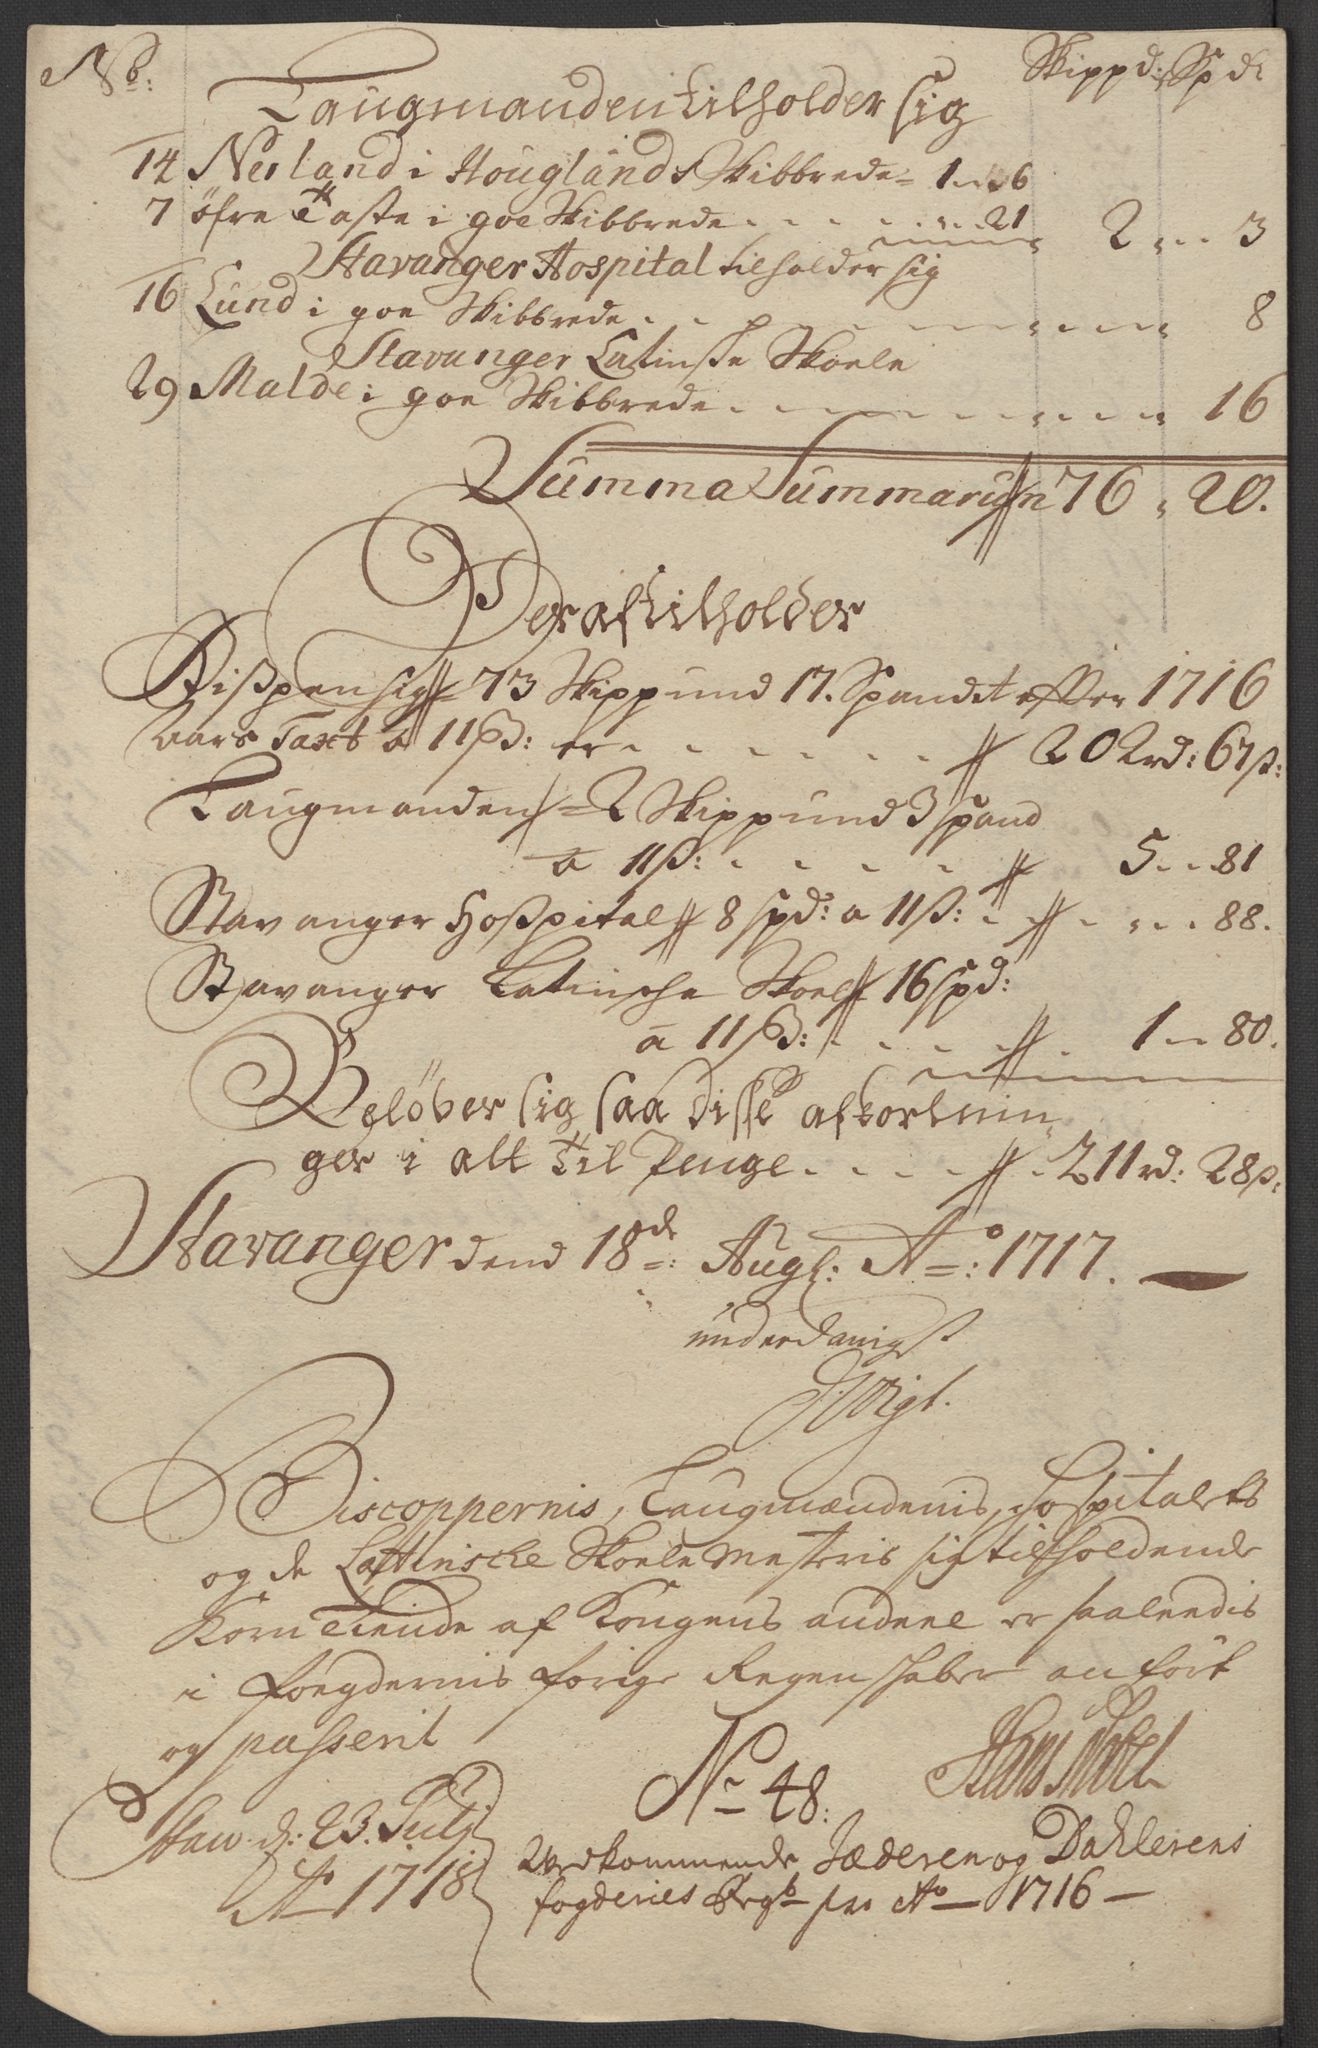 No: Skippd: Spd:
Laugmanden tilholder sig
14 Nerland i Houglands Skibbrede - 1 .. 6
7 öfre Taste i goe Skibbrede . . . . . . 21 2 .. 3
Stavanger Hospital tilholder sig
16 Lund i goe Skibbrede . . . . . . 8
Stavanger Latinsche Skoele
29 Malde i goe Skibbrede . . . . . . 16
Summa Summarum 76 , 20.
Der af tilholder
Bispen sig 73 Skippund 17. Spand et efter 1716
aars Taxt a 11 ß: er . . . . . . 202 rd: 67 ß:
Laugmanden 2 Skippund 3 spand
a 11 ß: . . . . . 5 .. 81
Stavanger Hospital 8 spd: a 11 ß: . . . . 88.
Stavanger Latinsche Skoel 16 spd:
a 11 ß: . . . . . 1 .. 80.
Beløber sig saa disse afkortnin
ger i alt til Penge . . . . . 211 rd: 28 ß:
Stavanger dend 18de: Augt: Ao: 1717.
underdanigst
Biscoppernis, Laugmændenis, Hospitalets
og de Lattinische Skoele Mesteris sig tilholdende
Korn Tiende af Kongens andeel er saaledis
i foegdernis forige Regenskaber anført
og passerit
Stav. d: 23. Julj
Ao 1718
No 48:
Vedkommende Jæderen og Dahlerens
fogderies Regsb pro Ao 1716